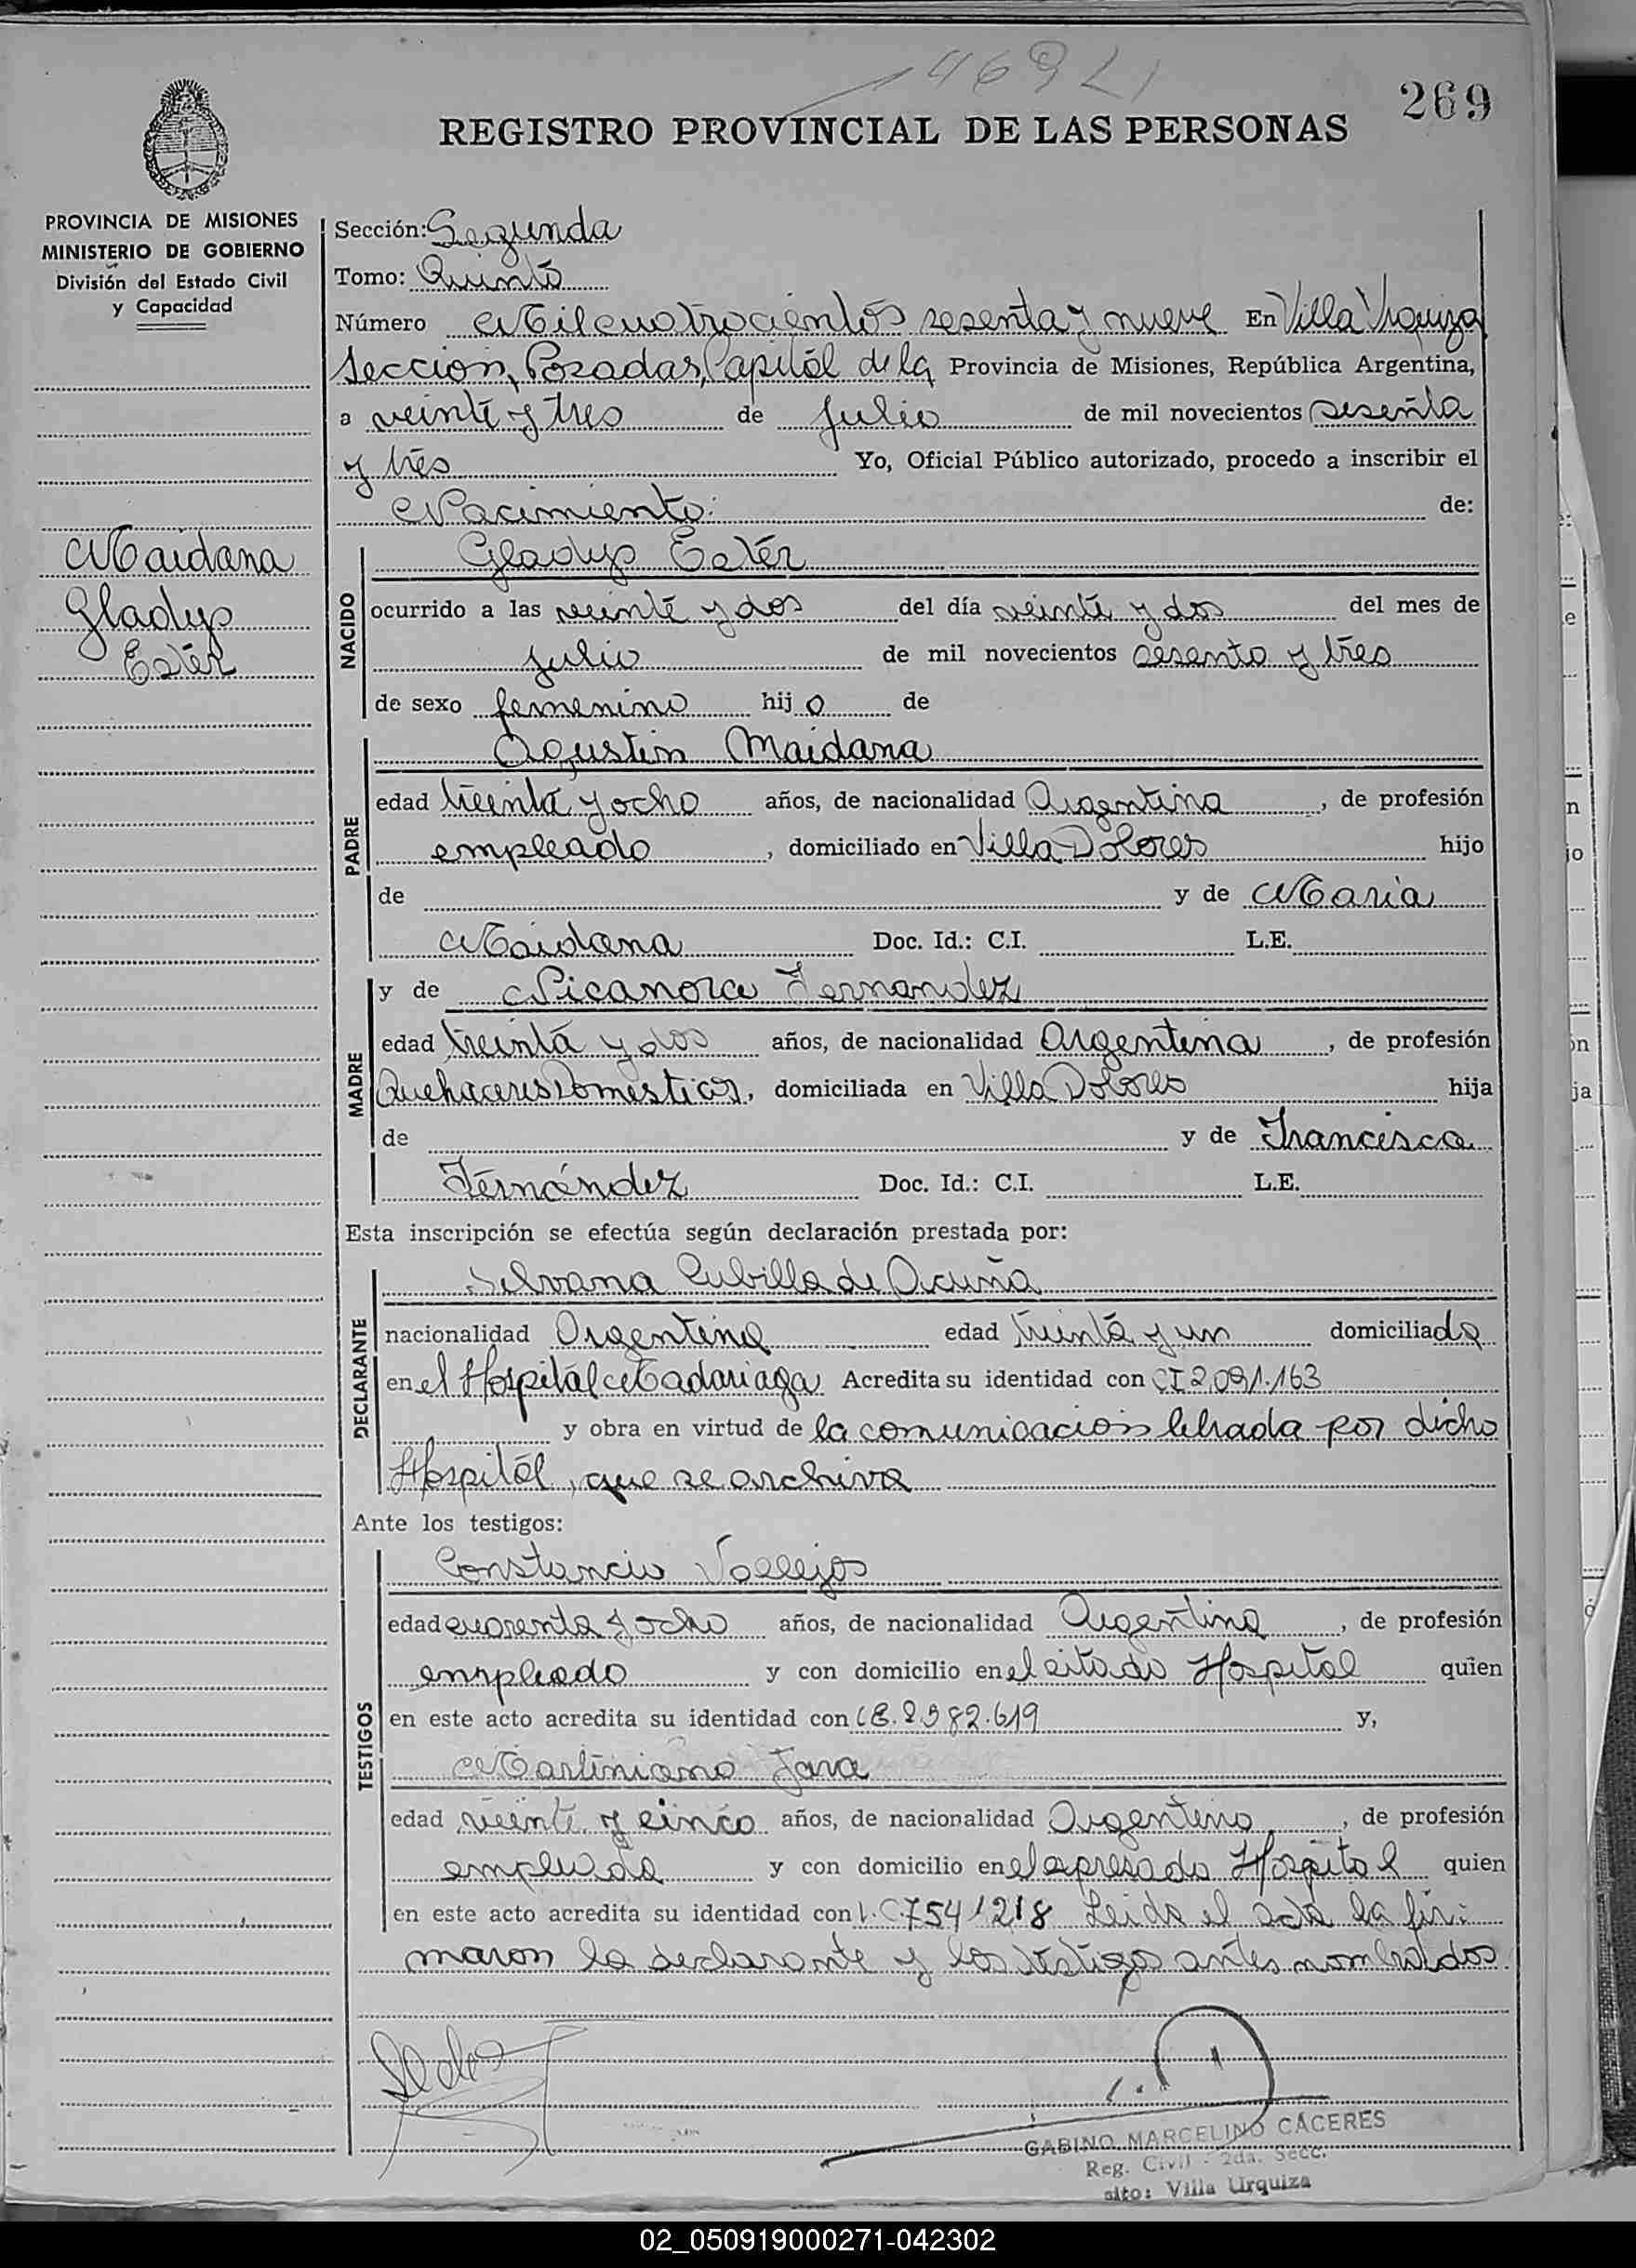 269
REGISTRO PROVINCIAL DE LAS PERSONAS
PROVINCIA DE MISIONES
MINISTERIO DE GOBIERNO
División del Estado Civil
y Capacidad
Maidana
Gladys
Estér
Sección: Segunda
Tomo: Quinto
Número Mil cuatrocientos sesenta y nueve En Villa Urquiza
Sección, Posadas, Capital de la Provincia de Misiones, República Argentina,
a veinte y tres de Julio de mil novecientos sesenta
y tres Yo, Oficial Público autorizado, procedo a inscribir el
Nacimiento: de:
NACIDO
Gladys Estér
ocurrido a las veinte y dos del día veinte y dos del mes de
Julio de mil novecientos sesenta y tres
de sexo femenino hijo de
PADRE
Agustin Maidana
edad treinta y ocho años, de nacionalidad Argentina, de profesión
empleado, domiciliado en Villa Dolores hijo
de y de Maria
Maidana Doc. Id.: C.I. L.E.
MADRE
y de Nicanora Fernandez
edad treinta y dos años, de nacionalidad Argentina, de profesión
Quehaceres Domesticos, domiciliada en Villa Dolores hija
de y de Francisca
Fernández Doc. Id.: C.I. L.E.
Esta inscripción se efectúa según declaración prestada por:
DECLARANTE
Silvana Cubilla de Acuña
nacionalidad Argentina edad treinta y un domiciliada
en el Hospital Madariaga Acredita su identidad con CI 2.091.163
y obra en virtud de la comunicación librada por dicho
Hospital, que se archiva
Ante los testigos:
TESTIGOS
Constancio Vallejos
edad cuarenta y ocho años, de nacionalidad Argentina, de profesión
empleado y con domicilio en el citado Hospital quien
en este acto acredita su identidad con 2.582.619 y,
Martiniano Jara
edad veinte y cinco años, de nacionalidad Argentino, de profesión
empleado y con domicilio en el expresado Hospital quien
en este acto acredita su identidad con 7541218 Leida el acta la fir:
maron la declarante y los testigos antes nombrados.
GABINO MARCELINO CÁCERES
Reg. Civil - 2da. Secc.
sito: Villa Urquiza
02_050919000271-042302